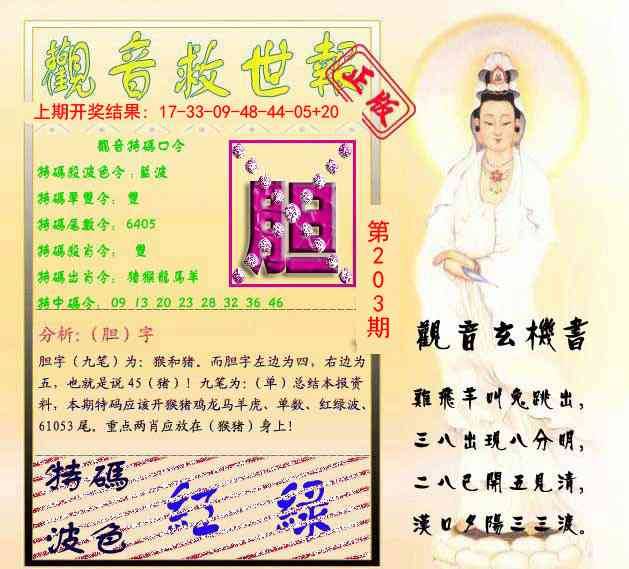 觀音救世報
正版
上期开奖结果：17-33-09-48-44-05+20
觀音特碼口令
特碼段波色令：藍波
特碼單雙令： 雙
特碼尾數令： 6405
特碼段肖令： 雙
特碼出肖令： 猪猴龍馬羊
特中碼令： 09 13 20 23 28 32 36 46
胆
第203期
分析:（胆）字
胆字（九笔）为：猴和猪。而胆字左边为四，右边为
五，也就是说 45（猪）！九笔为:（单）总结本报资
料，本期特码应该开猴猪鸡龙马羊虎、单数、红绿波、
61053 尾。重点两肖应放在（猴猪）身上！
特碼
波色
紅 綠
觀音玄機書
雞飛羊叫兔跳出，
三八出現八分明，
二八已開五見清，
漢口夕陽三三渡。